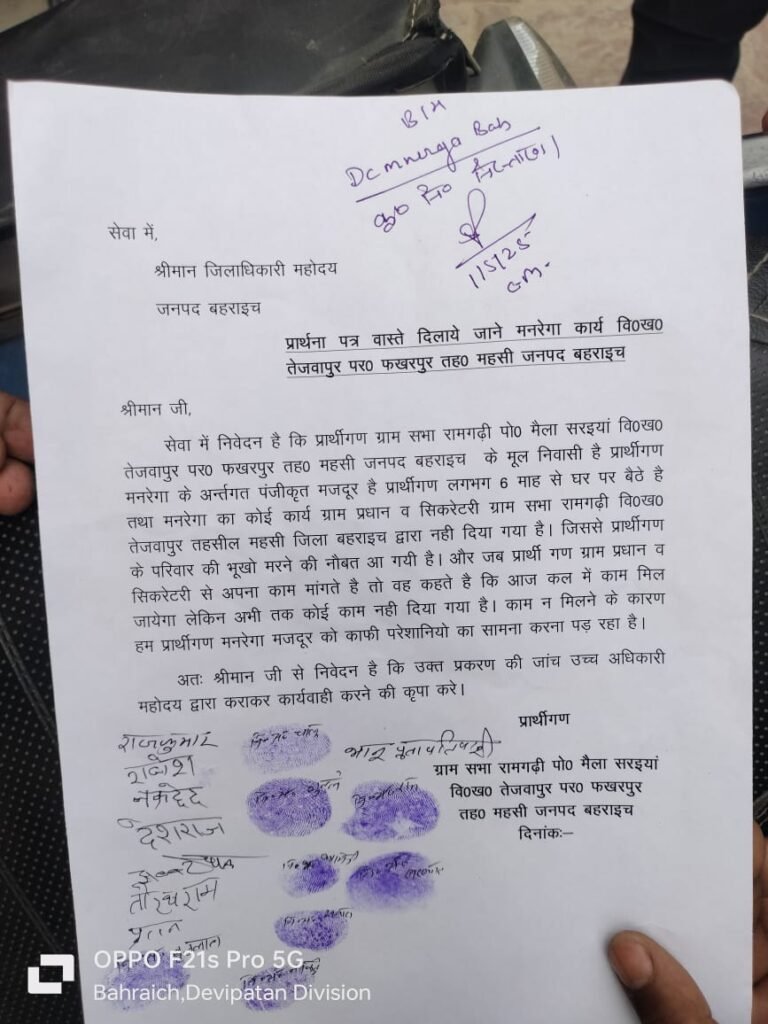 DC mnerga Bah
कृ० नि० निस्तारण।
1/5/25
सेवा में,
श्रीमान जिलाधिकारी महोदय
जनपद बहराइच
प्रार्थना पत्र वास्ते दिलाये जाने मनरेगा कार्य वि०ख०
तेजवापुर पर० फखरपुर तह० महसी जनपद बहराइच
श्रीमान जी,
सेवा में निवेदन है कि प्रार्थीगण ग्राम सभा रामगढ़ी पो० मैला सरइयां वि०ख०
तेजवापुर पर० फखरपुर तह० महसी जनपद बहराइच के मूल निवासी है प्रार्थीगण
मनरेगा के अर्न्तगत पंजीकृत मजदूर है प्रार्थीगण लगभग 6 माह से घर पर बैठे है
तथा मनरेगा का कोई कार्य ग्राम प्रधान व सिकरेटरी ग्राम सभा रामगढ़ी वि०ख०
तेजवापुर तहसील महसी जिला बहराइच द्वारा नही दिया गया है। जिससे प्रार्थीगण
के परिवार की भूखो मरने की नौबत आ गयी है। और जब प्रार्थी गण ग्राम प्रधान व
सिकरेटरी से अपना काम मांगते है तो वह कहते है कि आज कल में काम मिल
जायेगा लेकिन अभी तक कोई काम नही दिया गया है। काम न मिलने के कारण
हम प्रार्थीगण मनरेगा मजदूर को काफी परेशानियो का सामना करना पड़ रहा है।
अतः श्रीमान जी से निवेदन है कि उक्त प्रकरण की जांच उच्च अधिकारी
महोदय द्वारा कराकर कार्यवाही करने की कृपा करे।
प्रार्थीगण
ग्राम सभा रामगढ़ी पो० मैला सरइयां
वि०ख० तेजवापुर पर० फखरपुर
तह० महसी जनपद बहराइच
दिनांकः–
राजकुमार
राकेश
देशराज
OPPO F21s Pro 5G
Bahraich,Devipatan Division